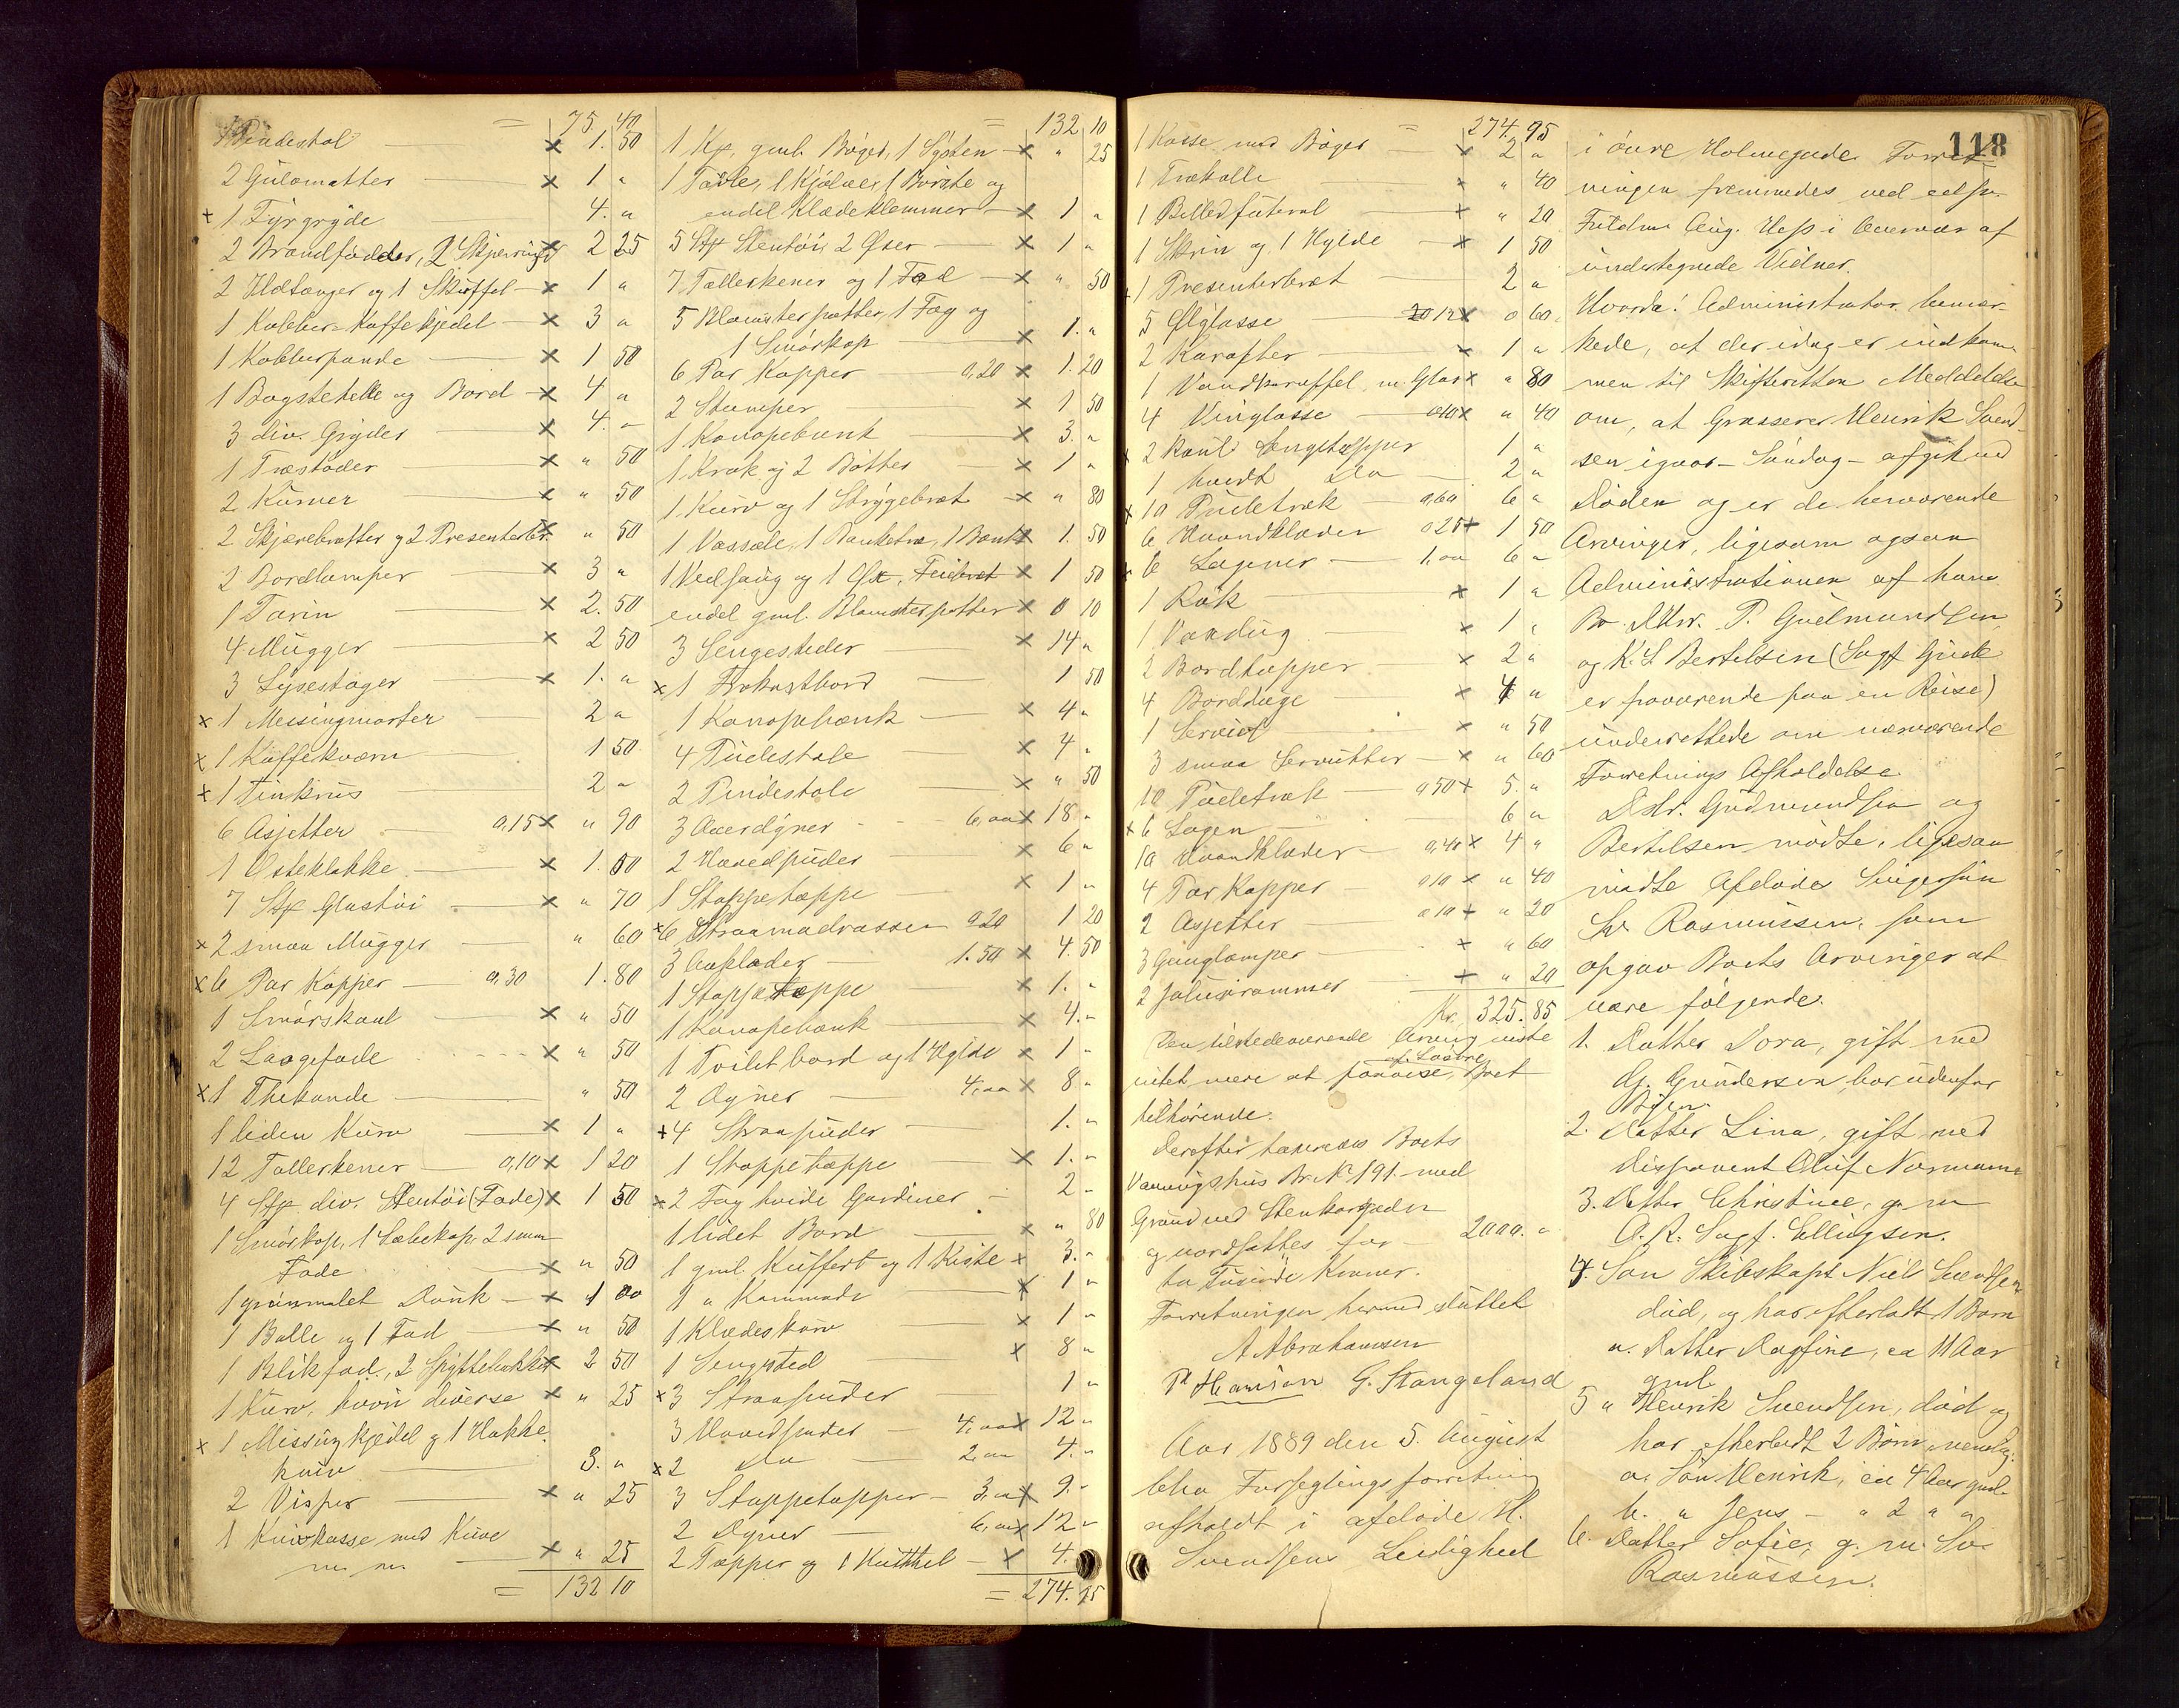 = 75. 40
1 Pindestol x 1. 50
2 Gulvmatter x 1 "
+ 1 Fyrgryde 4. "
2 Brandfødder, 2 x 2 25
2 Ildtænger og 1 Skuffel x 1 "
1 Kobber-Kaffekjedel x 3 "
1 Kobberpande x 1 50
1 Bagstehelle og Bord x 4 "
3 div. Gryder x 4. "
1 Træstøder x " 50
2 Kurver x " 50
2 Skjærebretter og 2 Presenterbr. x " 50
2 Bordlamper x 3 "
1 Tarin x 2. 50
4 Mugger x 2 50
3 Lysestager x 1. "
x 1 Messingmorter 2 "
x 1 Kaffekværn 1 50
x 1 Tinkrus 2 "
6 Asjetter 0,15 x " 90
1 Osteklokke x 1. 50
7 Stk Glastøi x " 70
x 2 smaa Mugger " 60
x 6 Par Kopper 0,30 1. 80
1 Smørskaal x " 50
2 Laagefade x " 50
x 1 Thekande " 50
1 liden Kurv x 1 "
12 Tallerkener 0,10 x 1 20
4 Stk div. Stentøi (Fade) x 1 50
1 Smørkop, 1 Sæbekop, 2 smaa
Fade x " 50
1 grønmalet Dunk x 1 00
1 Balle og 1 Fad x " 50
1 Blikfad, 2 Spyttebakker x 2 50
1 Kurv, hvori diverse x " 25
x 1 Missingkjedel og 1 Hakke
kniv 3. "
2 Visper x " 25
1 Knivkasse med Knive
m. m. x " 25
= 132 10
= 132 10
1 Kiste gml. Bøger, 1 Systen x " 25
1 Tavle, 1 Kjølner, 1 Børste og
endel Klædeklemmer x 1 "
5 Stk Stentøi, 2 Øser x 1 "
7 Tallerkener og 1 Fad x " 50
5 Blomsterpotter, 1 Fag og
1 Smørkop x 1. "
6 Par Kopper 0,20 x 1. 20
2 Stamper x 1 50
1 Kanapebænk x 3. "
1 Krak og 2 Bøtter x 1 "
1 Kurv og 1 Strygebræt x " 80
1 Vassæle, 1 Banketræ, 1 Bænk x 1. 50
1 Vedsaug og 1 Øx, x 1 50
endel gml. Blomsterpotter x 0 10
3 Sengesteder x 14 "
x 1 Frokostbord 1 50
1 Kanapebænk x 4 "
4 Pudestole x 4 "
2 Pindestole x " 50
3 Overdyner 6,00 x 18 "
2 Hovedpuder x 6 "
1 Stoppetæppe x 1 "
x 6 Straamadrasser 0.20 1 20
3 Aaklæder 1.50 x 4. 50
1 Stoppetæppe x 1. "
1 Kanapebænk x 4. "
1 Toiletbord og 1 Hylde x 1 "
2 Dyner 4,00 x 8 "
+ 4 Straapuder 1. "
1 Stoppetæppe x 1. "
x 2 Fag hvide Gardiner 2 "
1 lidet Bord x " 80
1 gml. Kuffert og 1 Kiste x 3. "
1 " Kommode x 1 "
1 Klædeskurv x 1 "
1 Sengested x 8 "
x 3 Straapuder 1 "
3 Hovedpuder 4,00 x 12 "
x 2 Do 2,00 4. "
3 Stoppetæpper 3,00 x 9. "
2 Dyner 6,00 x 12 "
2 Tæpper og 1 x 4.
= 274. 95
118
= 274. 95
1 Kasse med Bøger x 2 "
1 Trækolle x " 40
1 Billedfuteral x " 20
1 Skrin og 1 Hylde x 1 50
x 1 Presenterbræt 2 "
5 Ølglasse 0 12 x 0 60
2 Karafler x 1 "
1 Vandkaraffel m. Glas x " 80
4 Vinglasse 0.10 x " 40
x 2 Sengetæpper 1 "
1 hvidt Do 2 "
x 10 Pudetræk 0,60 6 "
6 Haandklæder 0 25 x 1 50
x 6 Lagener 1,00 6 "
1 Rok x 1 "
1 Voxdug x 1 "
2 Bordtæpper x 2 "
4 Bordduge x 4 "
1 Serviet x " 50
3 smaa Servietter x " 60
10 Pudetræk 0 50 x 5. "
x 6 Lagen 6 "
10 Haandklæder 0,40 x 4 "
4 Par Kopper 0 10 x " 40
2 Asjetter 0 10 x " 20
3 Ganglamper x " 60
2 Jalusirammer x " 20
Kr. 325. 85
Den tilstedeværende Arving vidste
intet mere at paavise, af Løsøre Boet
tilhørende.
Derefter taxeredes Boets
Vaaningshus Br. No 191 med
Grund ved Stenkargaden
og værdsattes for 2000. "
to Tusinde Kroner.
Forretningen hermed sluttet
A Abrahamsen
P. Hansson G. Stangeland
Aar 1889 den 5. August
blev Forseglingsforretning
afholdt i afdøde H.
Svendsens Leilighed
i øvre Holmegade. Forret-
ningen fremmedes ved edsv.
Fuldm. Aug. Hess i Overvær af
undertegnede Vidner.
Hvorda! Administrator bemær-
kede, at der idag er indkom-
men til Skifteretten Meddelelse
om, at Grosserer Henrik Svend-
sen igaar - Søndag - afgik ved
Døden og er de herværende
Arvinger, ligesom ogsaa
Administrationen af hans
Bo DHr. P. Gudmundsen
og K. S. Bertelsen (Sagf. Gude
er fraværende paa en Reise)
underrettede om nærværende
Forretnings Afholdelse.
DHr. Gudmundsen og
Bertelsen mødte, ligesaa
mødte Afdødes Svigersøn
Sv. Rasmussen, som
opgav Boets Arvinger at
være følgende.
1. Datter Dora, gift med
G. Gundersen bor udenfor
Byen
2. Datter Lina, gift med
Disponent Oluf Normann
3. Datter Christine, g. m
O. R. Sagf. Ellingsen.
4. Søn Skibskapt Niels Svendsen
død, og har efterladt 1 Barn
a. Datter Dagfine, ca 11 Aar
gml.
5 " Henrik Svendsen, død og
har efterladt 2 Børn nemlig:
a. Søn Henrik, ca 4 Aar gml.
b. " Jens - " 2 " "
6. Datter Sofie, g. m. Sv.
Rasmussen.